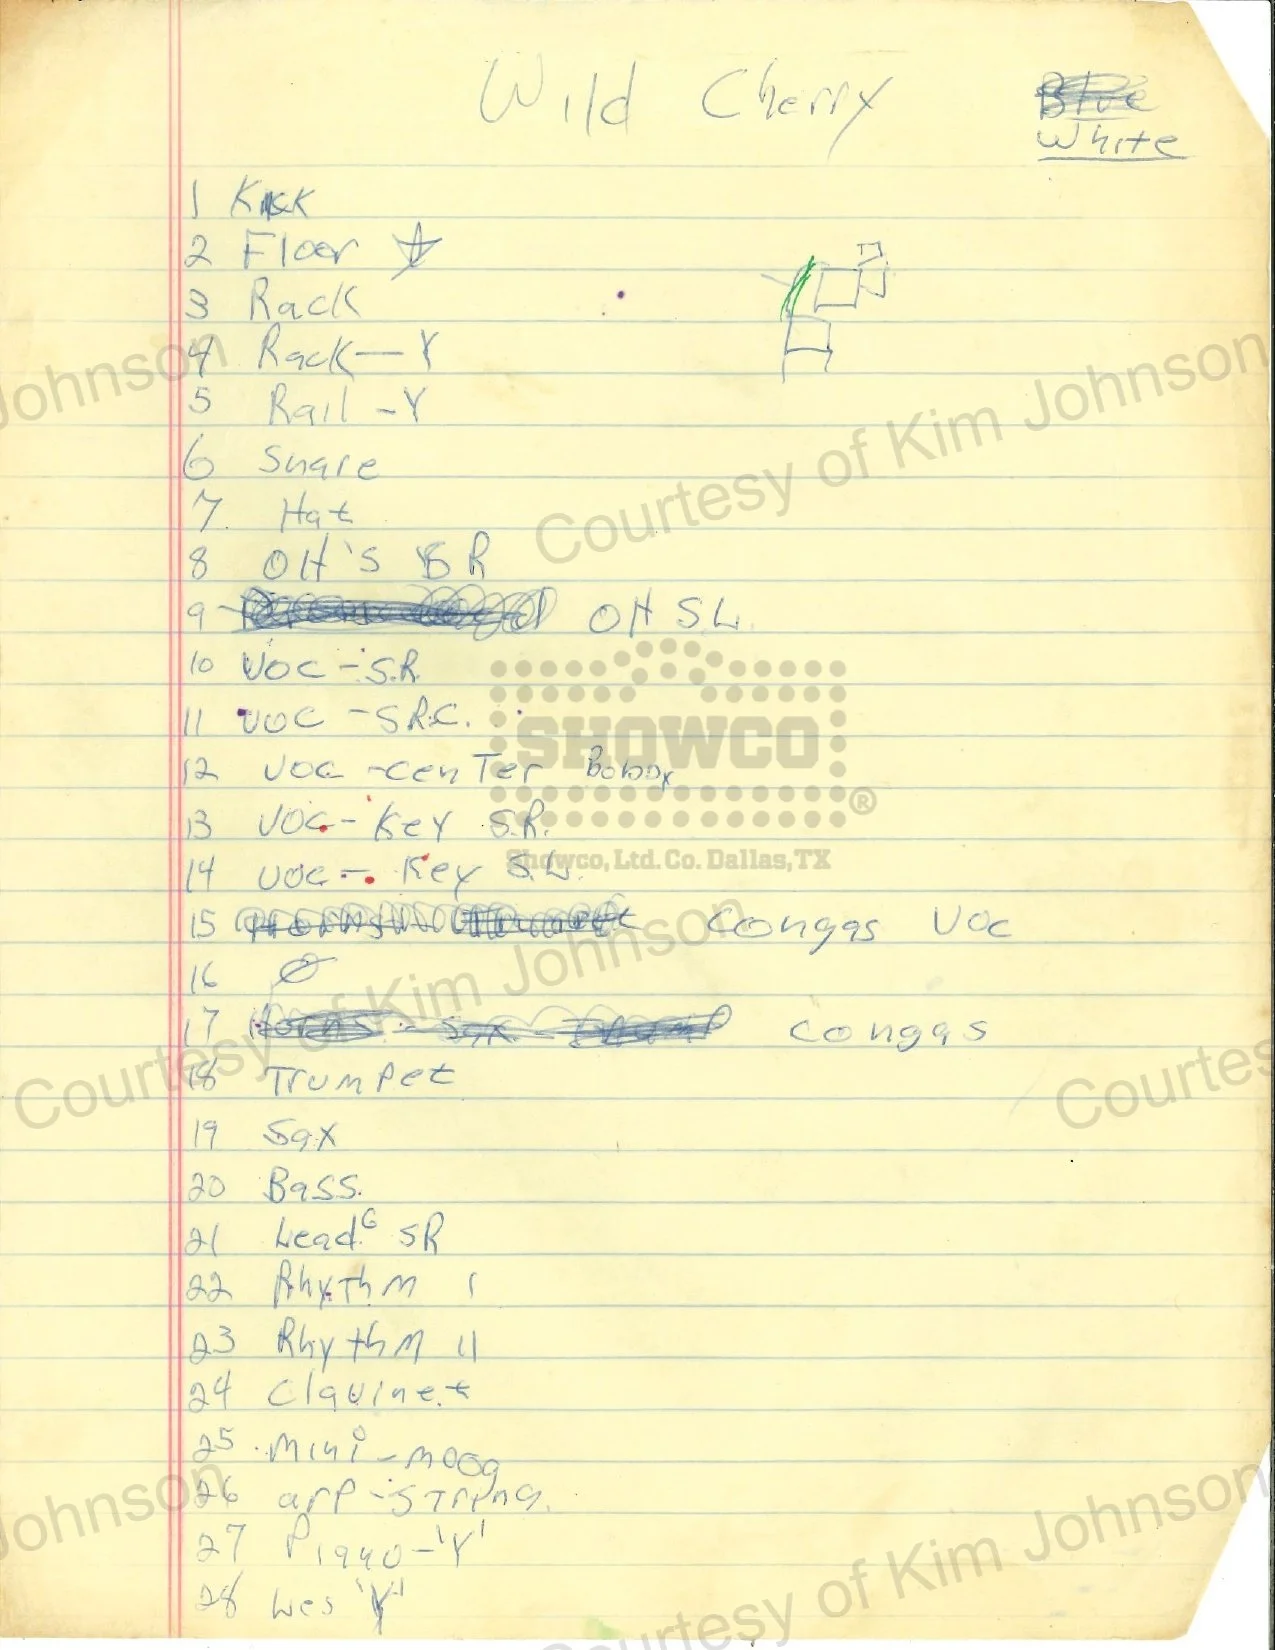 Wild Cherry
Blue
White
1 Kick
2 Floor
3 Rack
4 Rack - Y
5 Rail - Y
6 Snare
7 Hat
8 OH'S SR
9 OH SL
10 VOC - S.R.
11 VOC - SRC.
12 VOC - Center Bobby
13 VOC - Key S.R.
14 VOC - Key S.L.
15 Congas VOC
16 Ø
17 Horns - Sax - Congas
18 Trumpet
19 Sax
20 Bass
21 Lead G SR
22 Rhythm I
23 Rhythm II
24 Clavinet
25 Mini-moog
26 arp-string
27 Piano-'Y'
28 Les 'Y'
SHOWCO®
Showco, Ltd. Co. Dallas, TX
Johnson
Courtesy of Kim Johnson
Courtesy of Kim Johnson
Courtes
Johnson
Courtesy of Kim Johnson